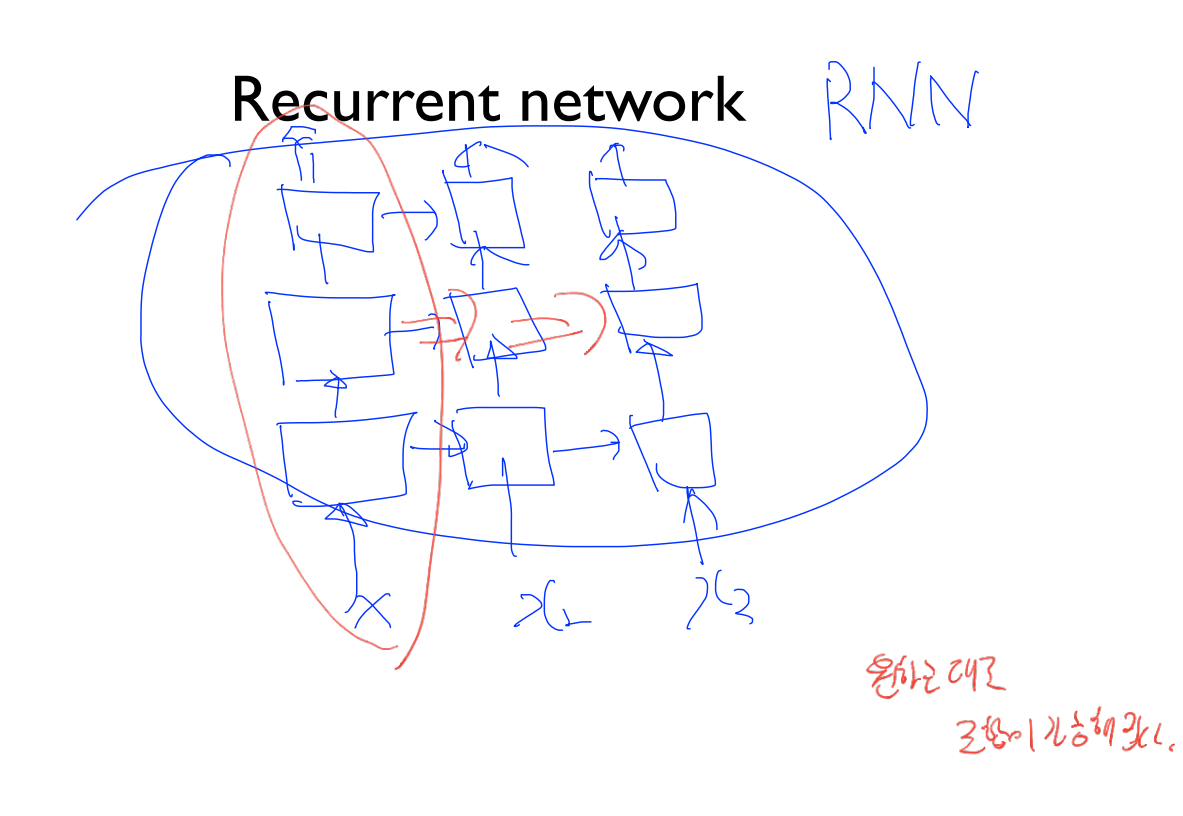 Recurrent network RNN
x x₁ x₂
원하는 대로
조합이 가능해졌다.